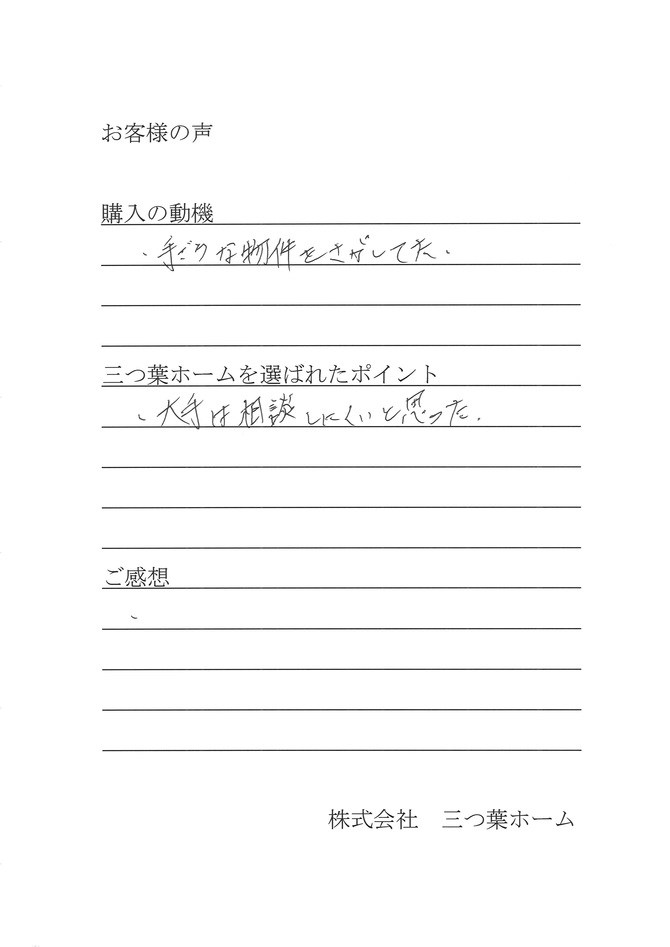 お客様の声
購入の動機
・手ごろな物件をさがしてた。
三つ葉ホームを選ばれたポイント
、大手は相談しにくいと思った。
ご感想
、
株式会社　三つ葉ホーム